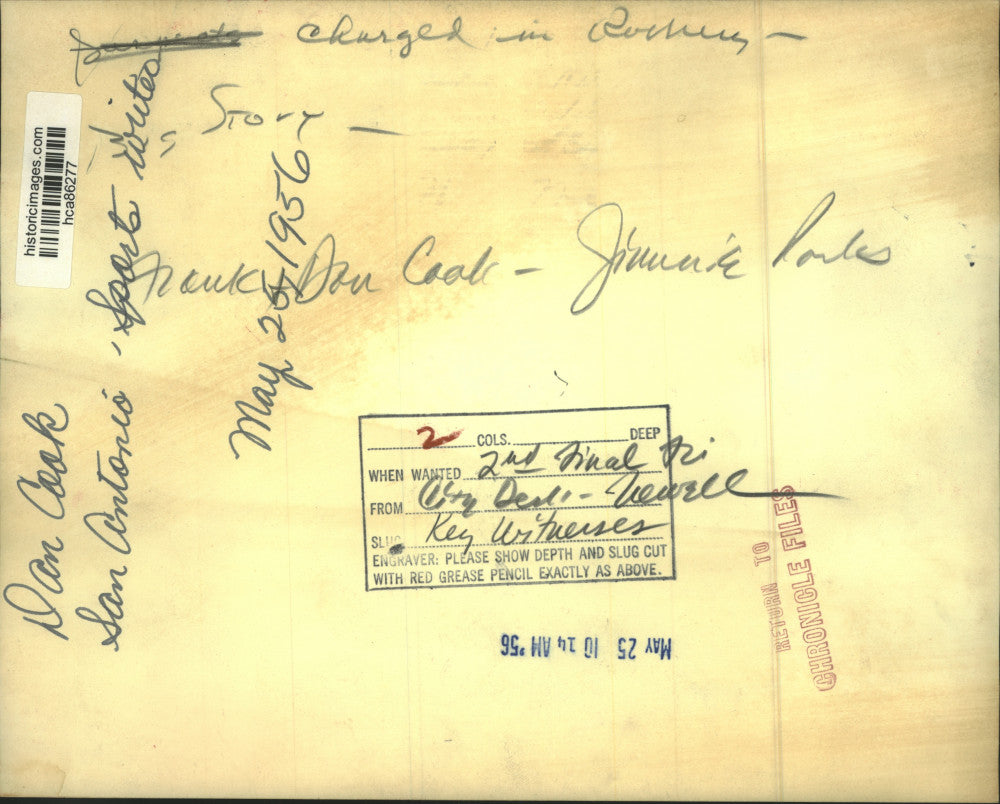 charged in Robbery —
Story —
Frank Don Cook – Jimmie Parks
Don Cook
San Antonio, Sports writer
May 25, 1956
historicimages.com
hca86277
2 COLS. DEEP
WHEN WANTED 2nd Final Fri
FROM City Desk - Newell
SLUG Key Witnesses
ENGRAVER: PLEASE SHOW DEPTH AND SLUG CUT
WITH RED GREASE PENCIL EXACTLY AS ABOVE.
MAY 25 10 14 AM '56
RETURN TO
CHRONICLE FILES